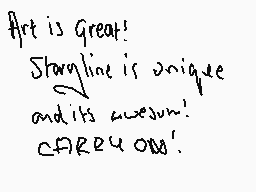 Art is Great!
Storyline is uniqee
and its awesum!
CARRY ON!